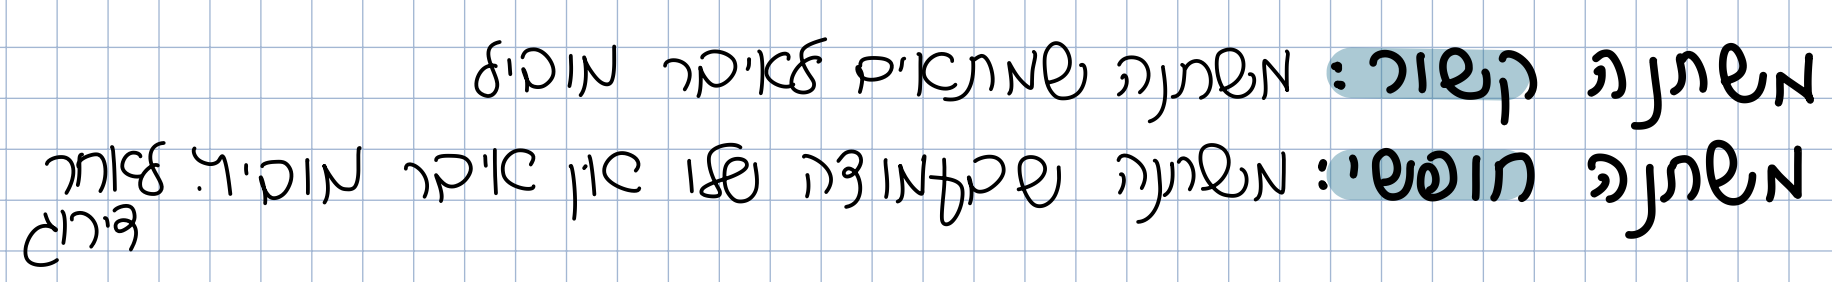 משתנה קשור: משתנה שמתאים לאיבר מוביל
משתנה חופשי: משתנה שבעמודה שלו אין איבר מוביל. לאחר
דירוג